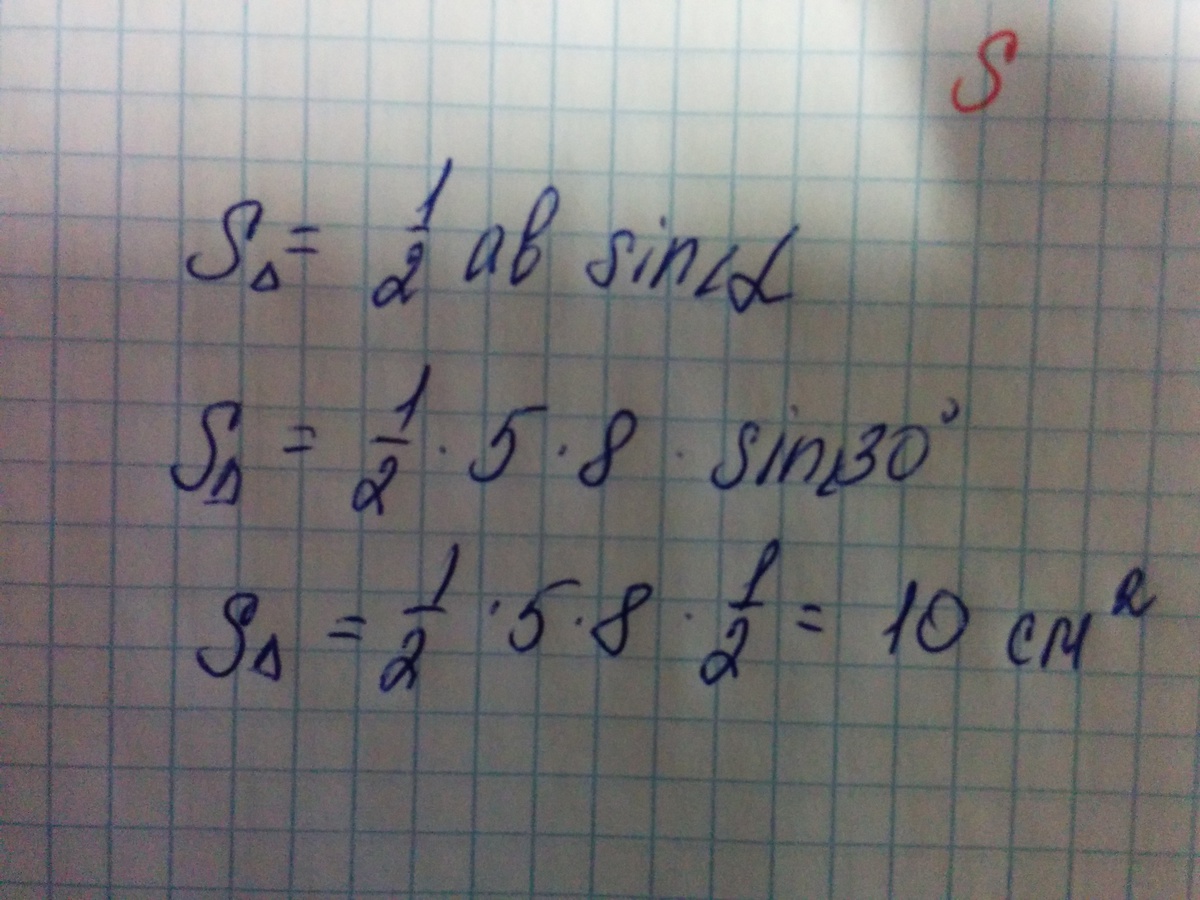 S
S△ = 1/2 ab sin∠α
S△ = 1/2 · 5 · 8 · sin∠30°
S△ = 1/2 · 5 · 8 · 1/2 = 10 см²